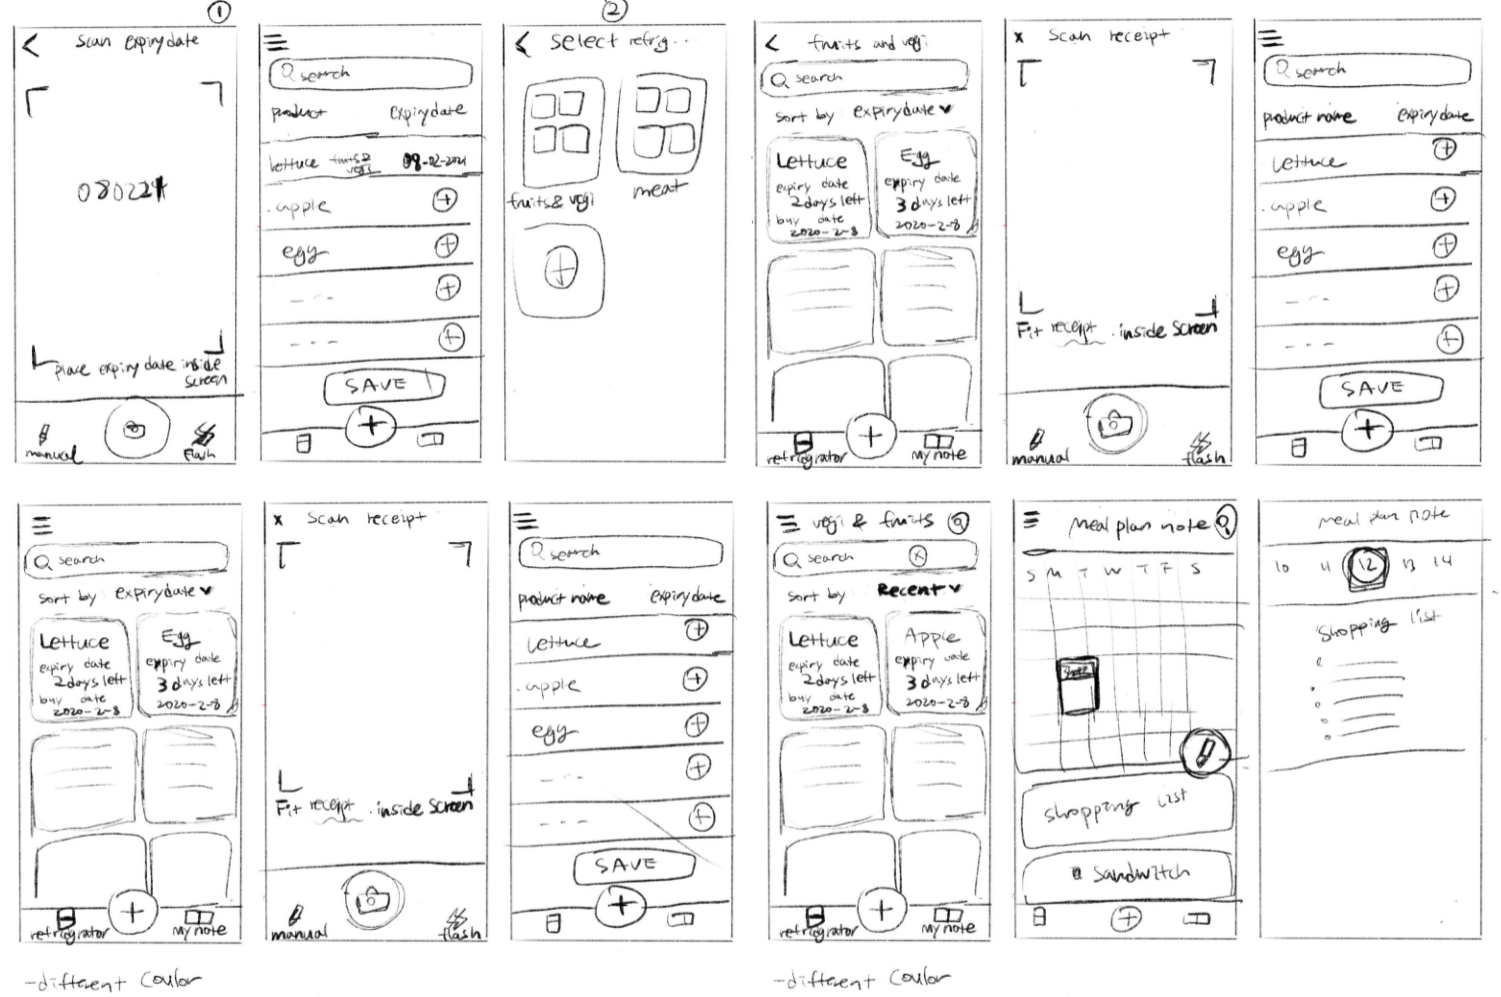 ①
Scan expiry date
080224
place expiry date inside
screen
manual
flash
search
product
expiry date
lettuce
fruits &
vegi
08-02-2021
apple
egg
SAVE
②
Select refrig...
fruits & vegi
meat
fruits and vegi
search
sort by
expiry date
Lettuce
expiry date
2 days left
buy date
2020-2-8
Egg
expiry date
3 days left
2020-2-8
refrigrator
My note
x Scan receipt
Fit receipt inside screen
manual
flash
search
product name
expiry date
lettuce
apple
egg
SAVE
search
sort by
expiry date
Lettuce
expiry date
2 days left
buy date
2020-2-8
Egg
expiry date
3 days left
2020-2-8
refrigrator
My note
-different Coulor
x Scan receipt
Fit receipt inside screen
manual
flash
search
product name
expiry date
lettuce
apple
egg
SAVE
vegi & fruits
search
sort by
Recent
Lettuce
expiry date
2 days left
buy date
2020-2-8
Apple
expiry date
3 days left
2020-2-8
refrigrator
My note
-different Coulor
Meal plan note
S M T W T F S
shopping list
sandwitch
meal plan note
10 11 12 13 14
Shopping list